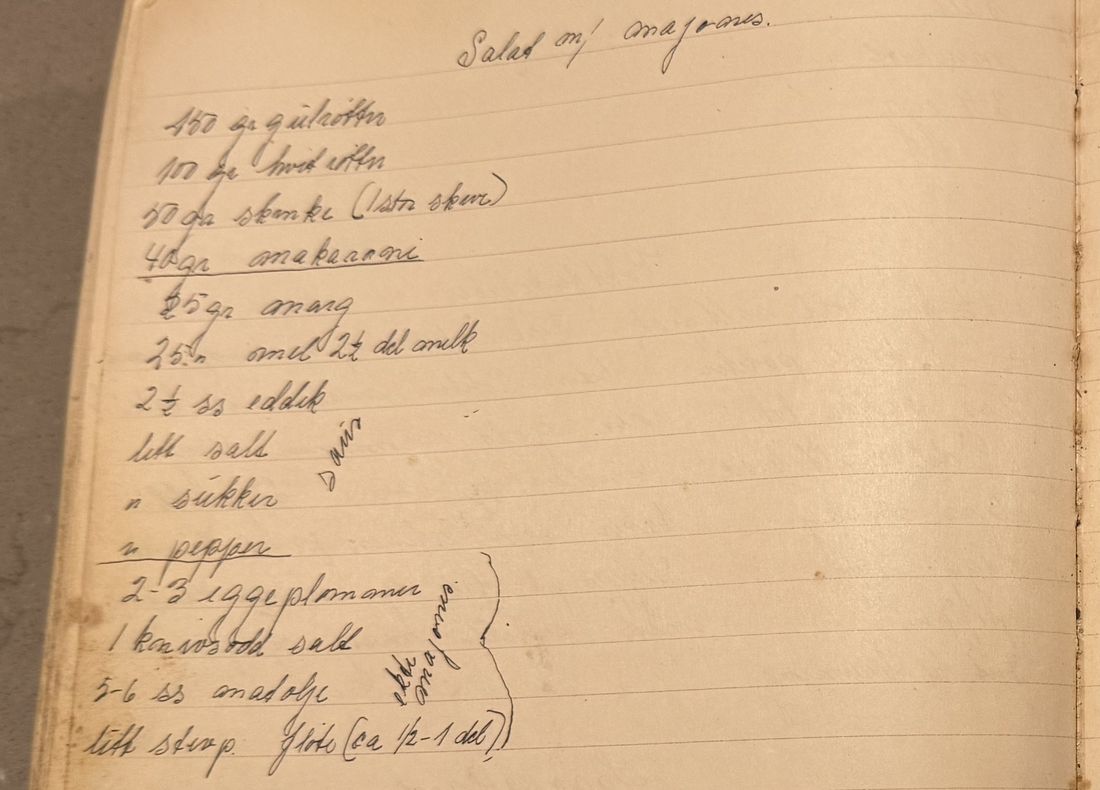 Salat m/ majones.
150 gr gülrötter
100 gr hvitrötter
50 gr skinke (1 stor skive)
40 gr makaroni
25 gr marg
25 " mel 2½ del melk
2½ ss eddik
litt salt
" sükker
saus
" pepper
2-3 eggeplommer
1 knivsodd salt
ekte
majones
5-6 ss matolje
litt stivp. fløte (ca 1/2-1 del)